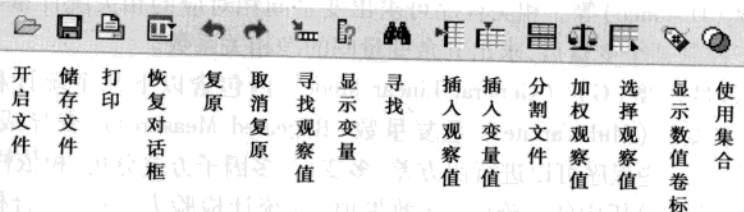 开启文件
储存文件
打印
恢复对话框
复原
取消复原
寻找观察值
显示变量
寻找
插入观察值
插入变量值
分割文件
加权观察值
选择观察值
显示数值卷标
使用集合